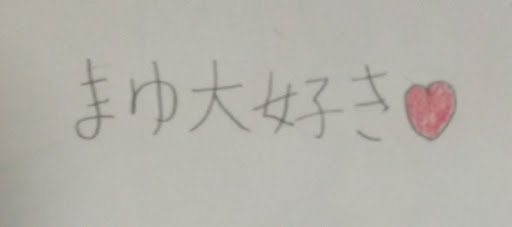 まゆ大好き♥